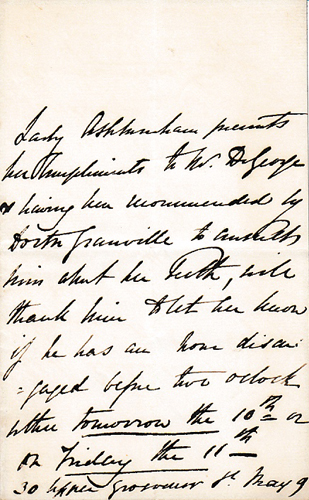 Lady Ashburnham presents
her Compliments to Mr. DeGeorge
& having been recommended by
Doctor Granville to consult
him about her Teeth, will
thank him to let her know
if he has an hour disen
=gaged before two o'clock
either tomorrow the 10th or
on Friday the 11th
30 Upper Grosvenor St. May 9